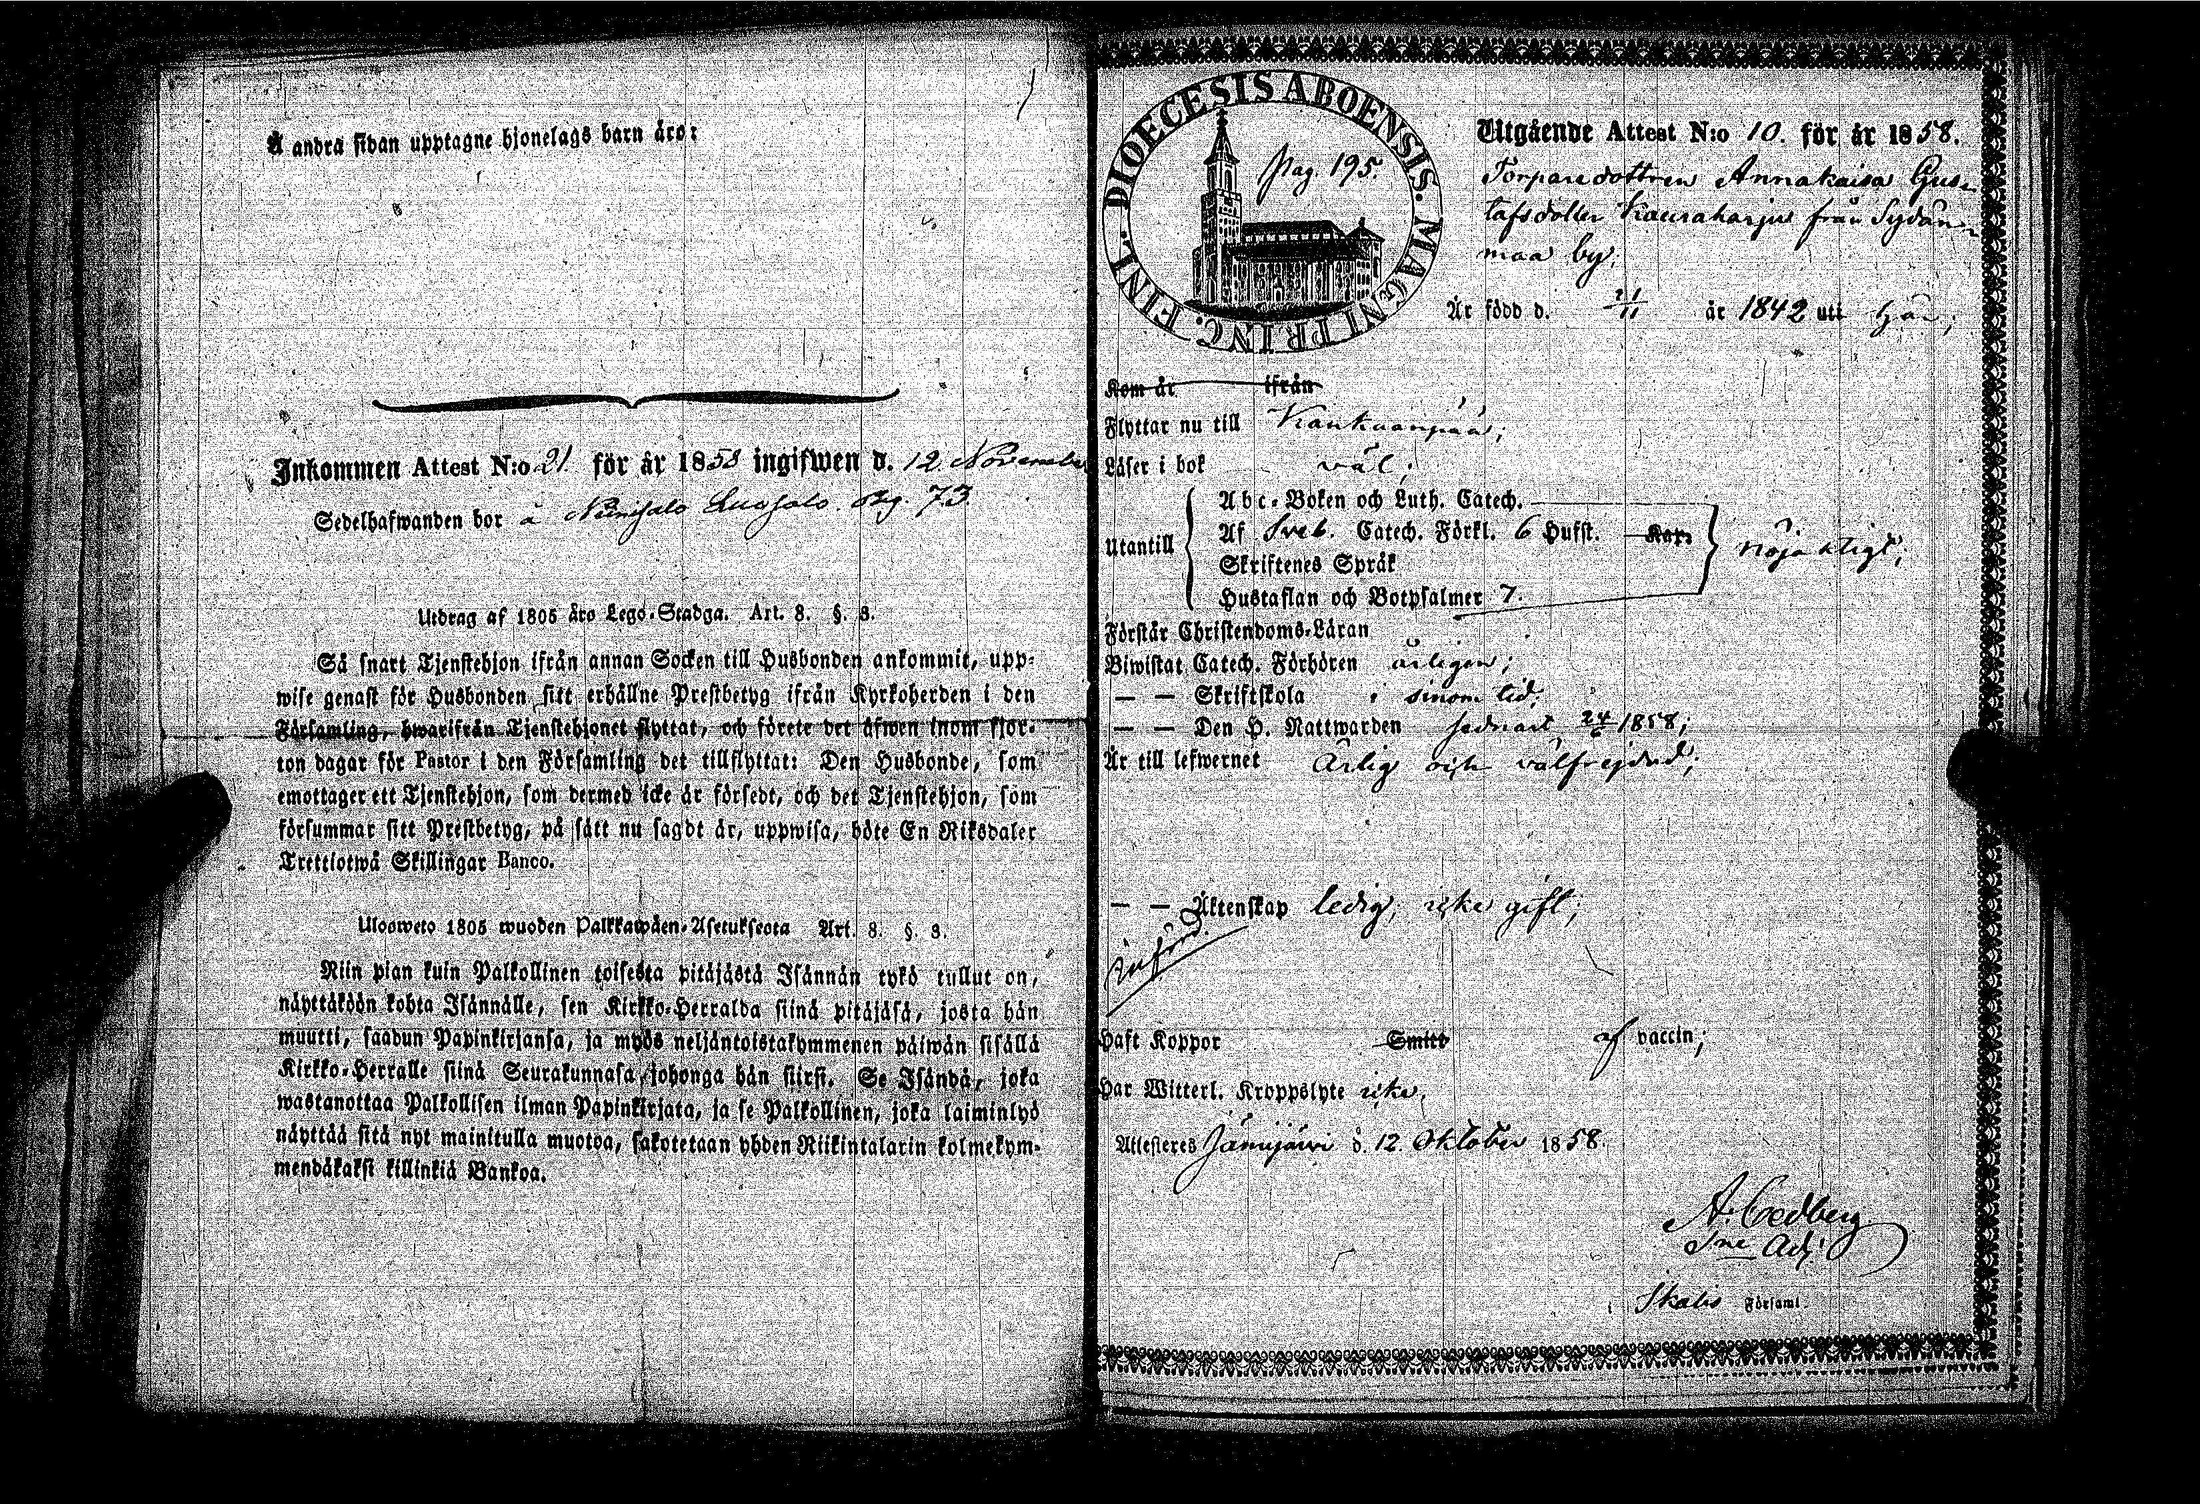 Å andra sidan upptagne hjonelags barn äro:
Inkommen Attest N:o 21. för år 1858 ingifwen d. 12. November
Sedelhafwanden bor å Niinisalo Luosalo. Pag. 73.
Utdrag af 1805 års Lego-Stadga. Art. 8. §. 3.
Så snart Tjenstehjon ifrån annan Socken till Husbonden ankommit, upp-
wise genast för Husbonden sitt erhållne Prestbetyg ifrån Kyrkoherden i den
Församling, hwarifrån Tjenstehjonet flyttat, och förete det äfwen inom fjor-
ton dagar för Pastor i den Församling det tillflyttat: Den Husbonde, som
emottager ett Tjenstehjon, som dermed icke är försedt, och det Tjenstehjon, som
försummar sitt Prestbetyg, på sätt nu sagdt är, uppwisa, böte En Riksdaler
Trettiotwå Skillingar Banco.
Ulosweto 1805 wuoden Palkkawäen-Asetuksesta Art. 8. §. 3.
Niin pian kuin Palkollinen toisesta pitäjästä Isännän tykö tullut on,
näyttäköön kohta Isännälle, sen Kirkko-Herralda siinä pitäjäsä, josta hän
muutti, saadun Papinkirjansa, ja myös neljäntoistakymmenen päiwän sisällä
Kirkko-Herralle siinä Seurakunnasa johonga hän siirsi. Se Isändä, joka
wastanottaa Palkollisen ilman Papinkirjata, ja se Palkollinen, joka laiminlyö
näyttää sitä nyt mainitulla muotoa, sakotetaan yhden Riikintalarin kolmekym-
mendäkaksi killinkiä Bankoa.
DIOECESIS ABOENSIS. MAGNI PRINC. FINL.
Pag. 195.
Utgående Attest N:o 10. för år 1858.
Torparedottren Annakaisa Gus-
tafsdotter Kauraharju från Sydän-
maa by,
Är född d. 21/11 år 1842 uti här;
Kom år ifrån
Flyttar nu till Kankaanpää;
Läser i bok väl.
Utantill
Abc-Boken och Luth. Catech.
Af Sveb. Catech. Förkl. 6 Hufst. Kap.
Skriftenes Språk
Hustaflan och Botpsalmer 7.
nöjaktigt;
Förstår Christendoms-Läran
Biwistat Catech. Förhören årligen;
— — Skriftskola i sinom tid;
— — Den H. Nattwarden sednast 24/6 1858;
Är till lefwernet Ärlig och välfrejdad;
— — Äktenskap ledig, icke gift;
Införd.
Haft Koppor Smitt af vaccin;
Har Witterl. Kroppslyte icke.
Attesteres Jämijärvi d. 12. Oktober 1858.
A. Cedberg
Sne Adj.
i Ikalis Församl.